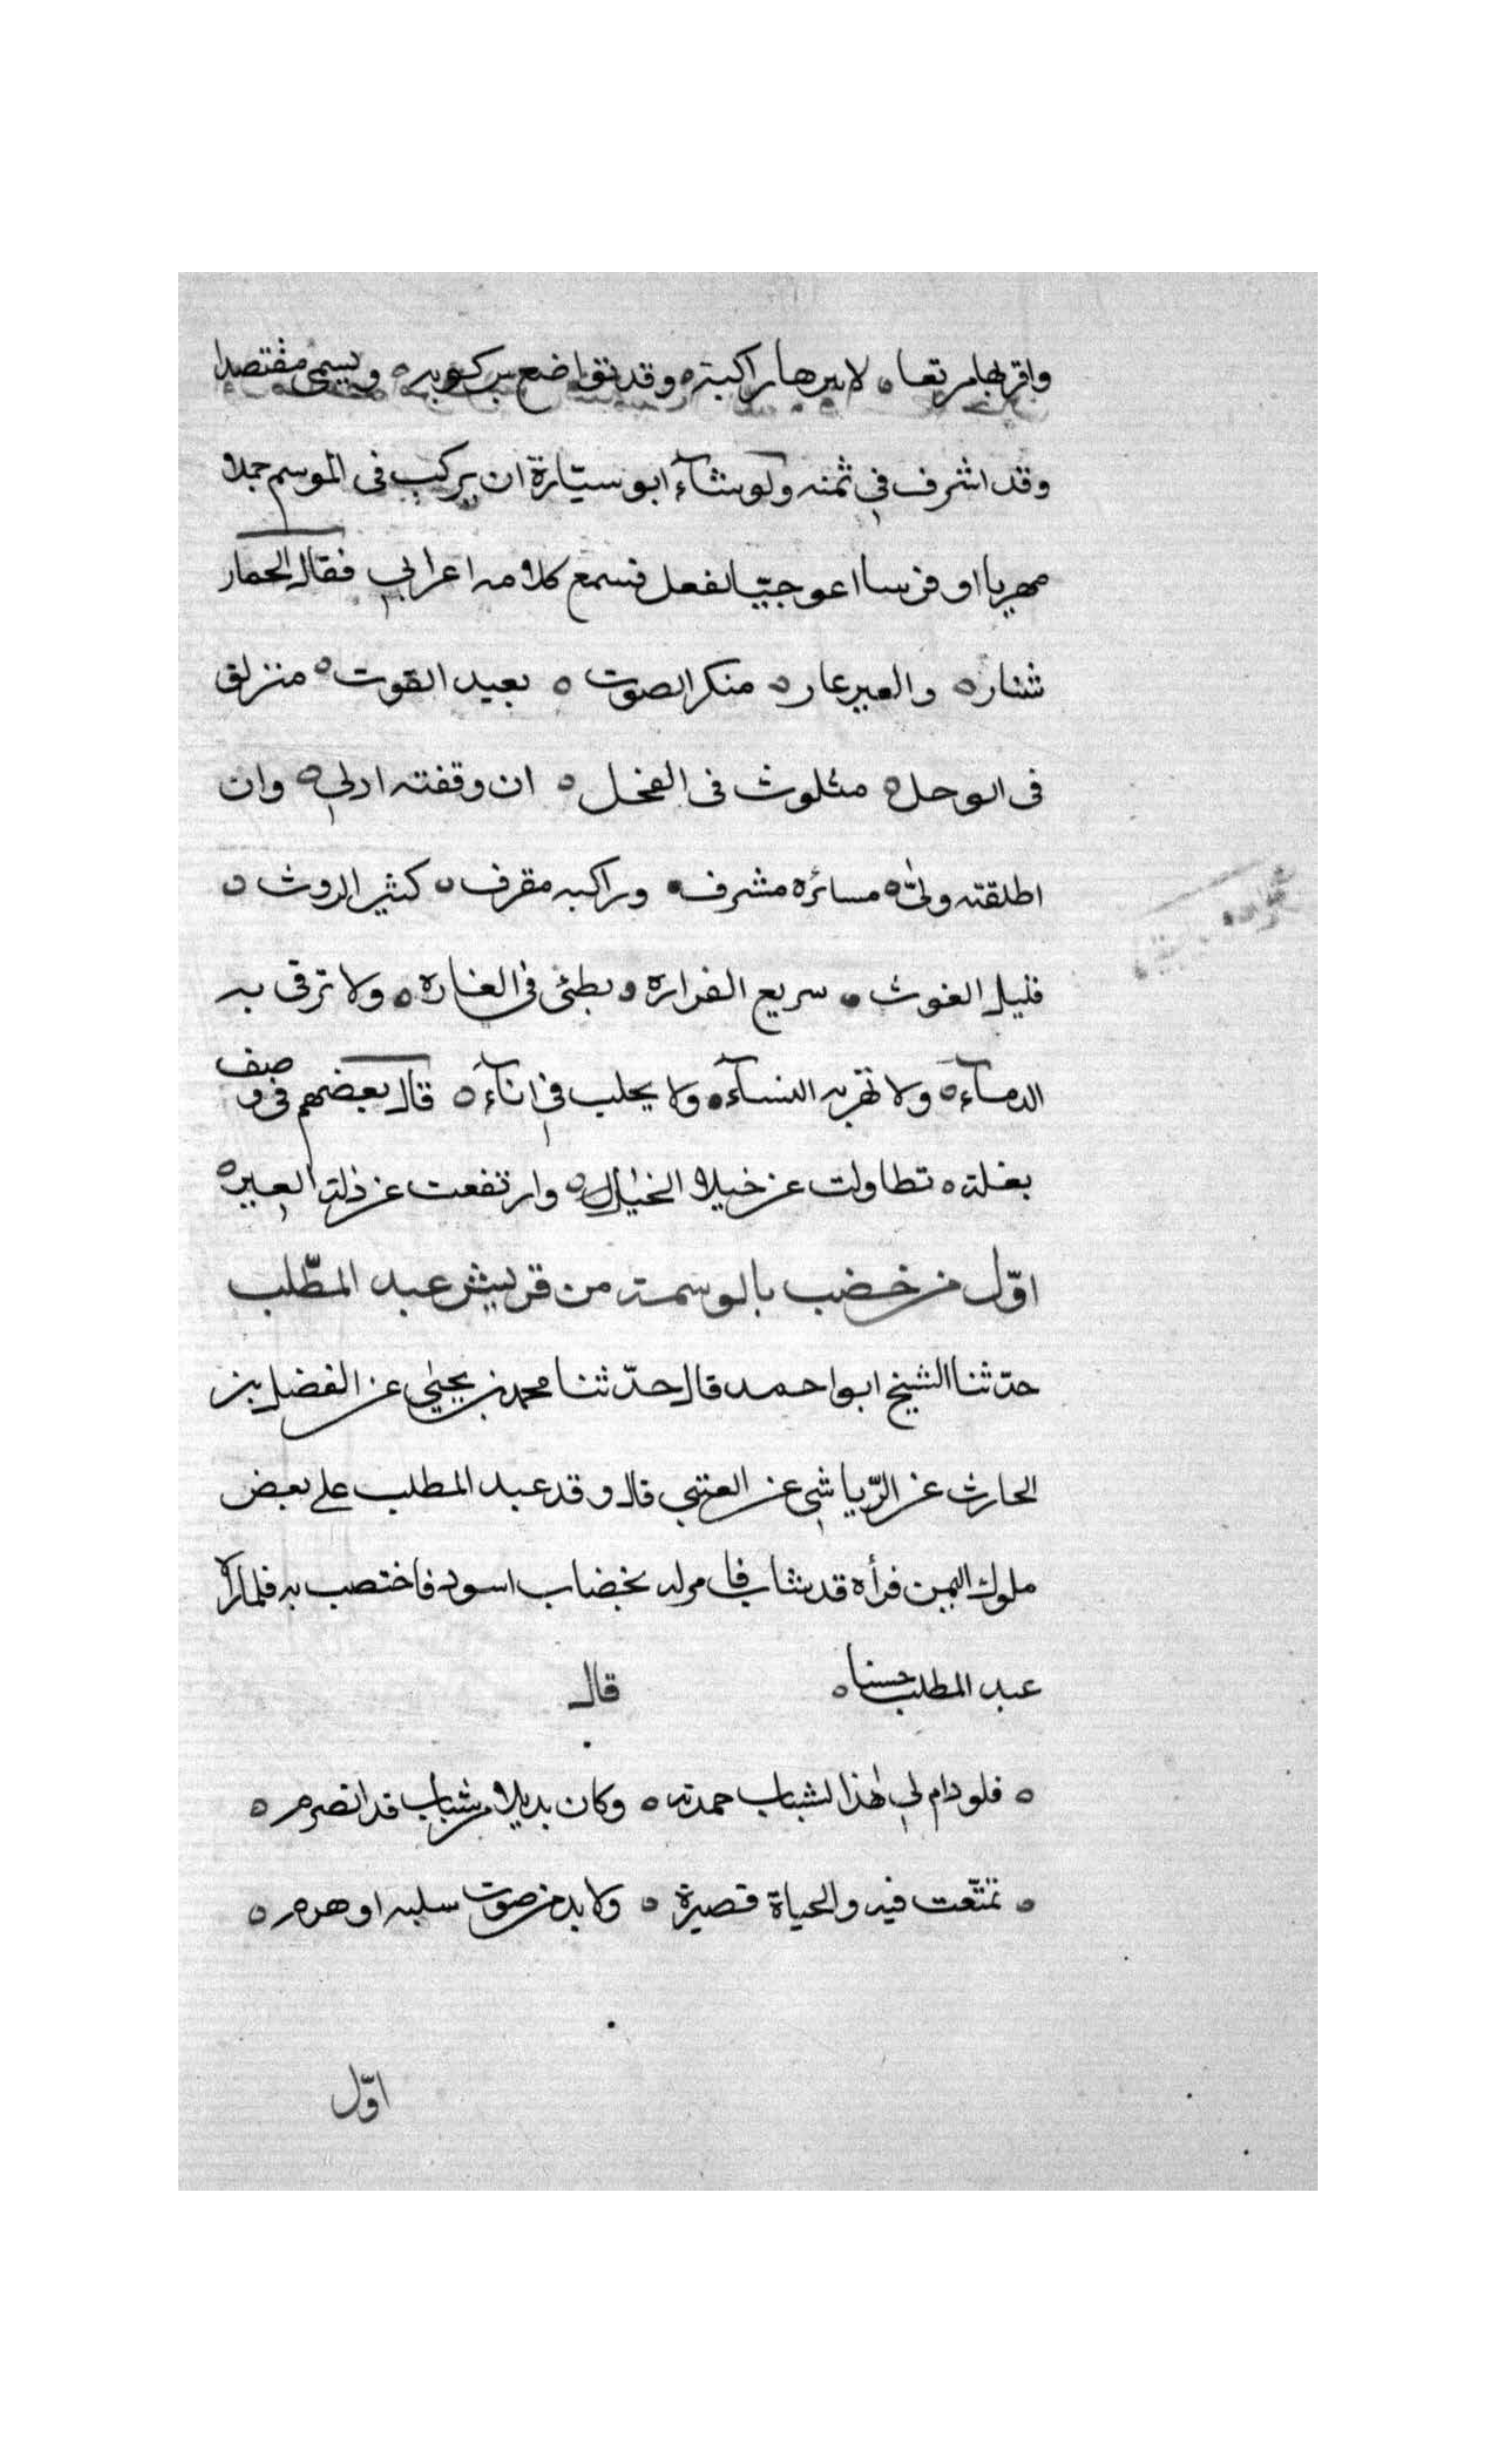 واقربها مرتعا ه لا يرها راكبته ه وقد تواضع بركوبه ه ويسمى مقتصدا
وقد اشرف في ثمنه ولوشآء ابو سيّارة ان يركب فى الموسم جملا
مهريا او فرسا اعوجيّا لفعل فسمع كلامه اعرابي فقال الحمار
شنار ه والعير عار ه منكر الصوت ه بعيد القوت ه منزلق
فى الوحل ه متلوث فى الضحل ه ان وقفته ادلي ه وان
اطلقته ولىّ ه مسائره مشرف ه وراكبه مقرف ه كثير الروث ه
قليل الغوث ه سريع الفراره ه بطئ في الغاره ه ولا ترقى به
الدمآء ه ولا تهر به النسآء ه ولا يحلب في انآء ه قال بعضهم فى وصف
بغلته ه تطاولت عن خيلا الخيل ه وارتفعت عن ذلة العير ه
اوّل من خضب بالوسمة من قريش عبد المطّلب
حدّثنا الشيخ ابو احمد قال حدّثنا محمد بن يحيٰي عن الفضل بن
الحارث عن الرّياشي عن العتبي قال وقد عبد المطلب على بعض
ملوك اليمن فرأه قد شاب فامر له بخضاب اسود فاختصب به فلما رآه
عبد المطلب حسنا ه قال
ه فلو دام لي هٰذا لشباب حمدته ه وكان بديلا من شباب قد انصرم ه
ه تمتّعت فيه والحياة قصيرة ه ولا بد من صوت سلبه او هرم ه
اوّل